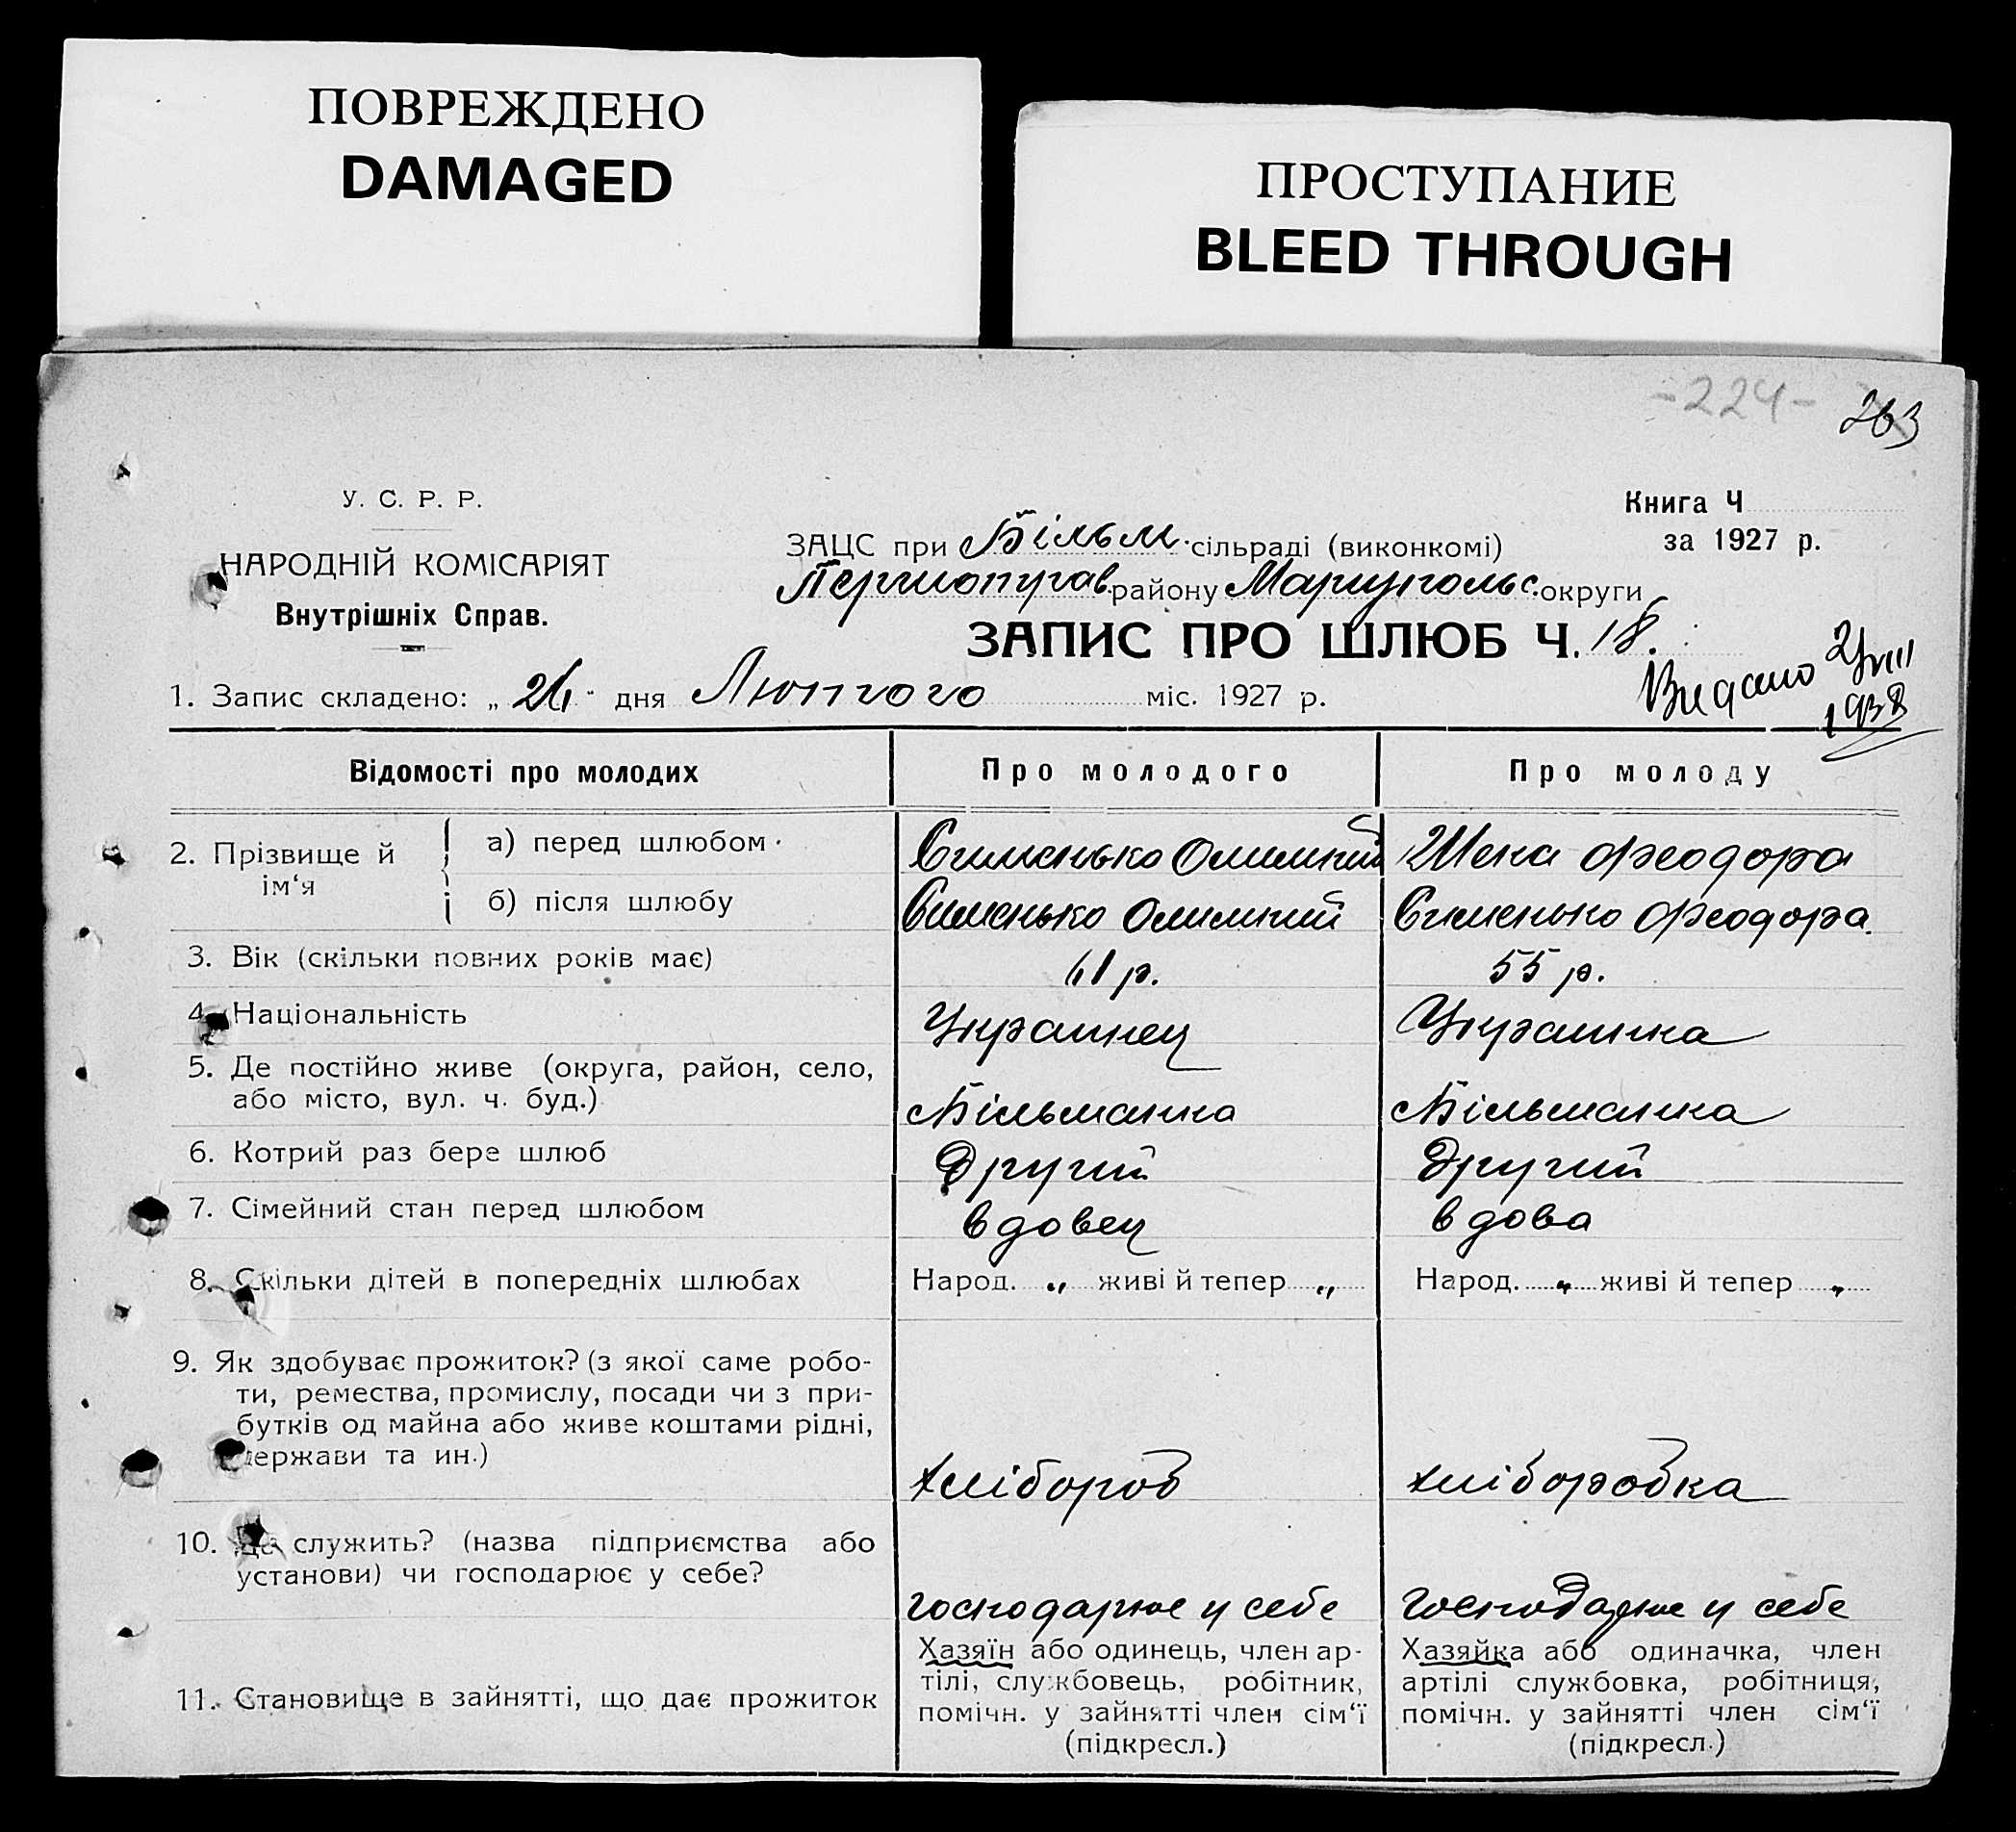 ПОВРЕЖДЕНО
DAMAGED
ПРОСТУПАНИЕ
BLEED THROUGH
-224-
263
У. С. Р. Р.
НАРОДНІЙ КОМІСАРІЯТ
Внутрішніх Справ.
Книга Ч
за 1927 р.
ЗАЦС при Більм. сільраді (виконкомі)
району Маріупольс. округи
ЗАПИС ПРО ШЛЮБ Ч. 18.
Видано
1938
1. Запис складено: „26" дня Лютого міс. 1927 р.
Відомості про молодих
Про молодого
Про молоду
2. Прізвище й ім‘я
а) перед шлюбом
Шека Феодора
б) після шлюбу
Феодора.
3. Вік (скільки повних років має)
61 р.
55 р.
4. Національність
Украинец
Украинка
5. Де постійно живе (округа, район, село,
або місто, вул. ч. буд.)
Більманка
Більманка
6. Котрий раз бере шлюб
Другий
Другий
7. Сімейний стан перед шлюбом
вдовец
вдова
8. Скільки дітей в попередніх шлюбах
Народ. „ живі й тепер „
Народ. „ живі й тепер „
9. Як здобуває прожиток? (з якої саме робо-
ти, ремества, промислу, посади чи з при-
бутків од майна або живе коштами рідні,
держави та ин.)
хлібороб
хліборобка
10. Де служить? (назва підприємства або
установи) чи господарює у себе?
господарює у себе
господарює у себе
11. Становище в зайнятті, що дає прожиток
Хазяїн або одинець, член ар-
тілі, службовець, робітник,
помічн. у зайнятті член сім‘ї
(підкресл.)
Хазяйка або одиначка, член
артілі службовка, робітниця,
помічн. у зайнятті член сім‘ї
(підкресл.)